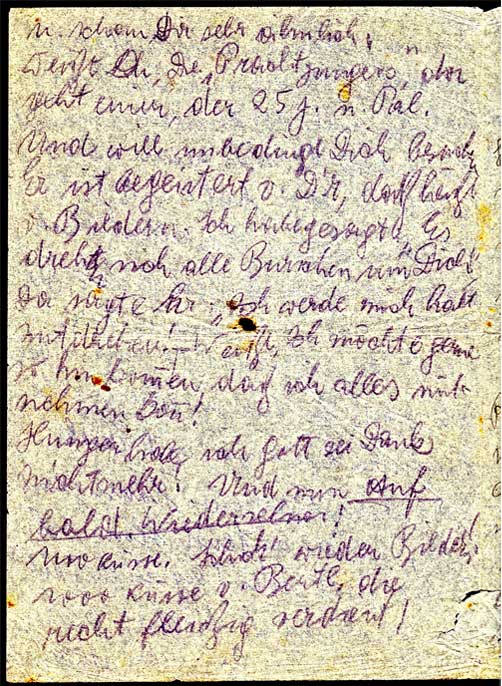 u. schon Dir sehr ähnlich.
Weißt Du, De "Praalzjungers" dar
geht einer, der 25 J. n. Pal.
Und will unbedingt Dich besuch
Er ist begeistert v. Dir, das heißt
v. Bildern. Ich habe gesagt, Es
drehen sich alle Burschen um "Dich"
Da sagte Er: "Ich werde mich halt
mitdrehen! Weißt, Ich möchte gerne
so hinkomen daß ich alles mit
nehmen kon!
Hunger habe ich Gott sei Dank
nichtmehr! Und nun Auf
bald. Wiedersehen!
1000 Küsse. Schick wieder Bilder!
1000 Küsse v. Bertl, die
recht fleißig